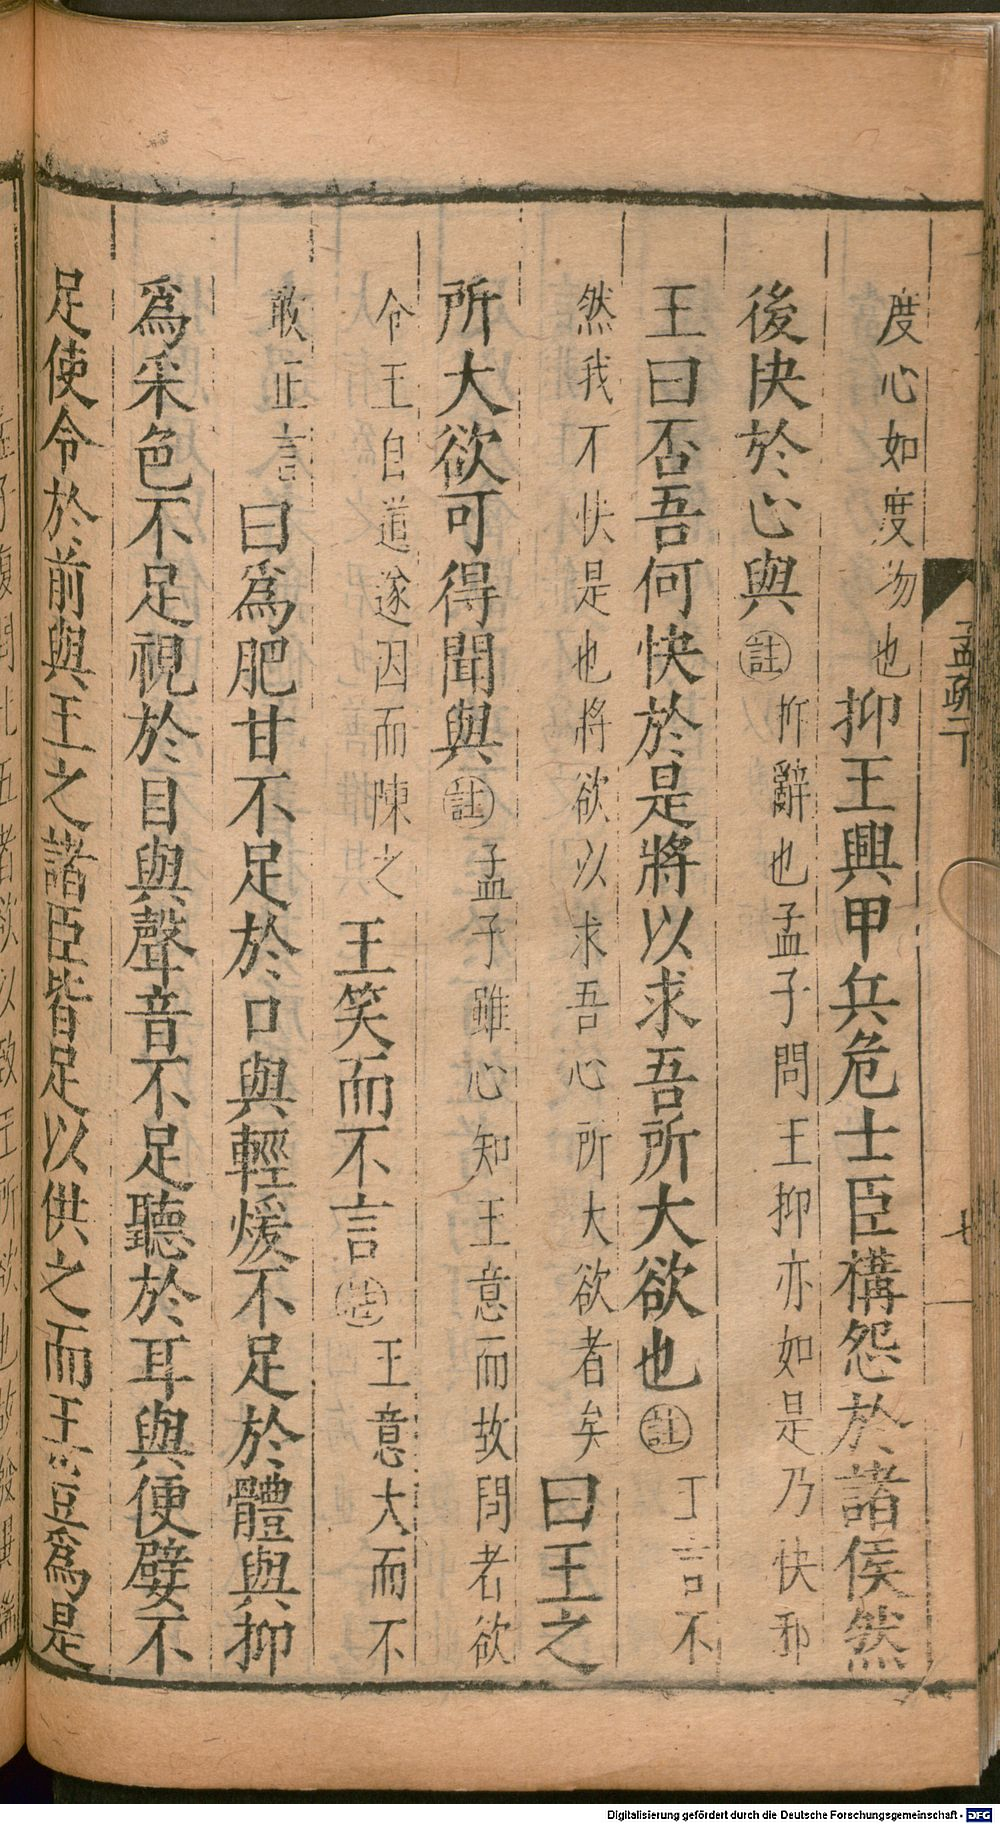 度心如度物也抑王興甲兵危士臣構怨於諸侯然
後快於心與註抑辭也孟子問王抑亦如是乃快邪
王曰否吾何快於是將以求吾所大欲也註王言不
然我不快是也將欲以求吾心所大欲者矣曰王之
所大欲可得聞與註孟子雖心知王意而故問者欲
令王自道遂因而陳之王笑而不言註王意大而不
敢正言曰爲肥甘不足於口與輕煖不足於體與抑
爲采色不足視於目與聲音不足聽於耳與便嬖不
足使令於前與王之諸臣皆足以供之而王豈爲是
孟疏一下
七
Digitalisierung gefördert durch die Deutsche Forschungsgemeinschaft - DFG